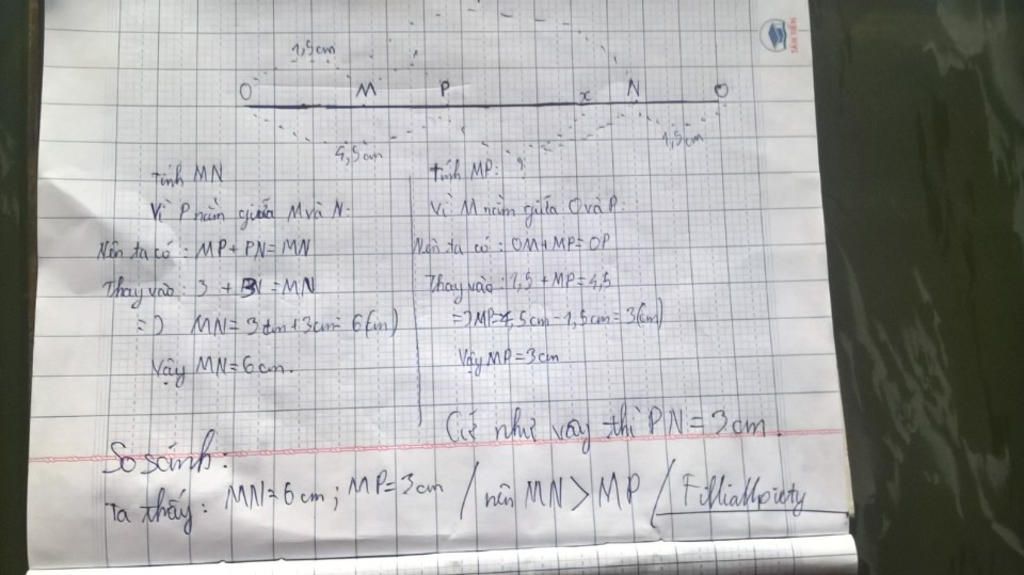 TÂN TIẾN
1,5cm
O M P x N O
4,5cm 1,5cm
tính MN
Vì P nằm giữa M và N.
Nên ta có: MP + PN = MN
Thay vào: 3 + = MN
=> MN = 3cm + 3cm = 6(cm)
Vậy MN = 6cm.
tính MP:
Vì M nằm giữa O và P.
Nên ta có: OM + MP = OP
Thay vào: 1,5 + MP = 4,5
=> MP = 4,5cm - 1,5cm = 3(cm)
Vậy MP = 3cm
Cứ như vậy thì PN = 3cm.
So sánh:
Ta thấy: MN = 6cm; MP = 3cm / nên MN > MP /